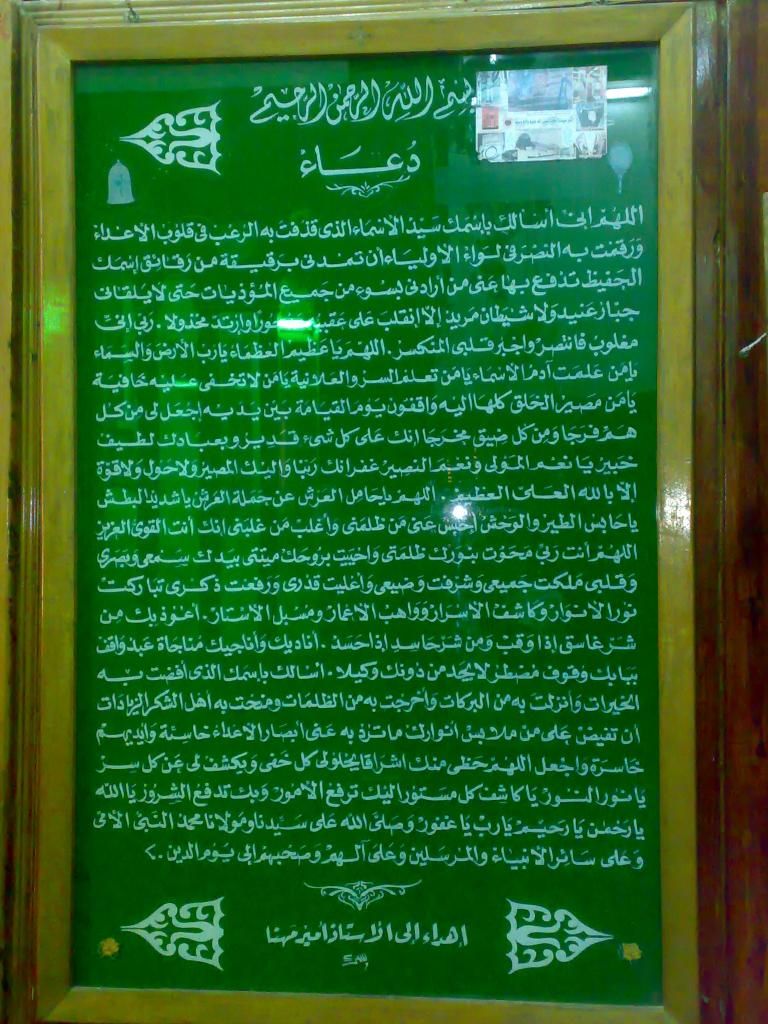 بسم الله الرحمن الرحيم
دعاء
اللهم إني أسألك بإسمك سيد الأسماء الذى قذفت به الرعب فى قلوب الأعداء
ورقمت به النصر فى لواء الأولياء أن تمدنى برقيقة من رقائق إسمك
الحفيظ تدفع بها عنى من أرادنى بسوء من جميع المؤذيات حتى لا يلقانى
جبار عنيد ولا شيطان مريد إلا انقلب على عقبيه وارتد مخذولا . ربى إنى
مغلوب فانتصر واجبر قلبى المنكسر . اللهم يا عظيم العظماء يارب الأرض والسماء
يا من علمت آدم الأسماء يا من تعلم السر والعلانية يا من لا تخفى عليه خافية
يا من مصير الخلق كلها اليه واقفون يوم القيامة بين يديه إجعل لى من كل
هم فرجا ومن كل ضيق مخرجا إنك على كل شىء قدير وبعبادك لطيف
خبير يا نعم المولى ونعيم النصير غفرانك ربنا واليك المصير ولا حول ولا قوة
إلا بالله العلى العظيم . اللهم يا حامل العرش عن حملة العرش يا شديد البطش
يا حابس الطير والوحش إحبس عنى من ظلمنى وأغلب من غلبنى إنك أنت القوى العزيز
اللهم أنت ربى محوت بنورك ظلمتى واحييت بروحك ميتتى بيدك سمعى وبصرى
وقلبى ملكت جميعى وشرفت وضيعى وأعليت قدرى ورفعت ذكرى تباركت
نور الأنوار وكاشف الأسرار وواهب الأعمار ومسبل الأستار . أعوذ بك من
شر غاسق إذا وقب ومن شر حاسد إذا حسد . أناديك وأناجيك مناجاة عبد واقف
ببابك وقوف مضطر لا يجد من دونك وكيلا . أسألك بإسمك الذى أفضت به
الخيرات وأنزلت به من البركات وأخرجت به من الظلمات ومنحت به أهل الشكر الزيادات
أن تفيض على من ملابس أنوارك ما ترد به عنى أبصار الأعداء خاسئة وأيديهم
خاسرة واجعل اللهم حظى منك اشراقا يجلو لى كل خفى ويكشف لى عن كل سر
يا نور النور يا كاشف كل مستور اليك ترفع الأمور وبك تدفع الشرور يا الله
يا رحمن يا رحيم يارب يا غفور وصلى الله على سيدنا ومولانا محمد النبى الأمى
وعلى سائر الأنبياء والمرسلين وعلى آلهم وصحبهم إلى يوم الدين .
اهداء إلى الأستاذ أمير مهنا